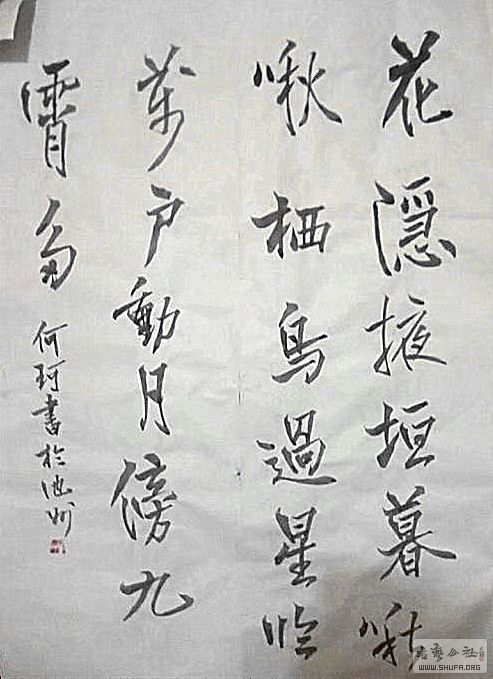 花隱掖垣暮啾
啾栖鳥過星臨
萬戶動月傍九
霄多
何珂書於池州
書藝公社
WWW.SHUFA.ORG